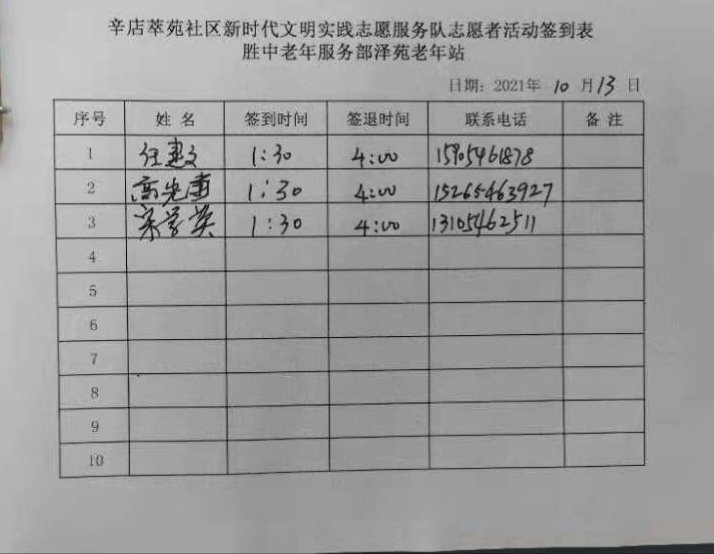 辛店萃苑社区新时代文明实践志愿服务队志愿者活动签到表
胜中老年服务部泽苑老年站
日期：2021年 10 月 13 日
序号 姓名 签到时间 签退时间 联系电话 备注
1 任惠文 1:30 4:00 15905461878
2 高先 1:30 4:00 15265463927
3 宋学英 1:30 4:00 13105462511
4
5
6
7
8
9
10